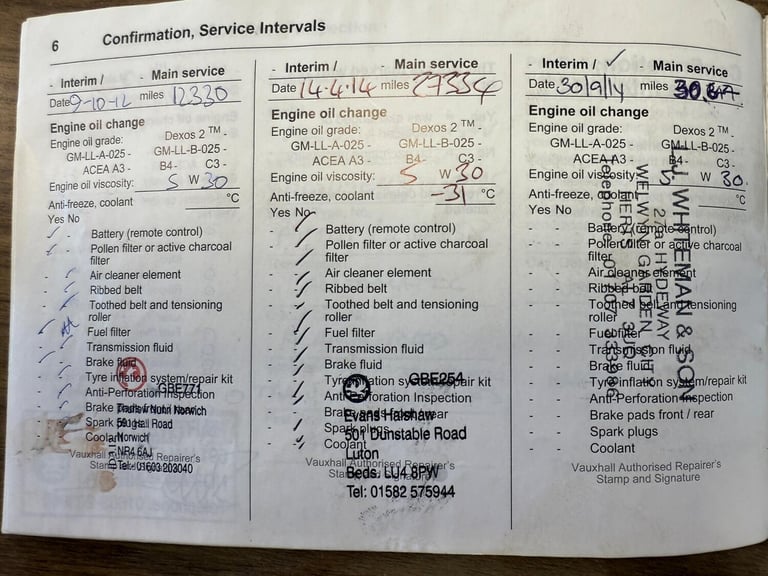 6
Confirmation, Service Intervals
- Interim / - Main service
Date 9-10-12 miles 12330
Engine oil change
Engine oil grade: Dexos 2 ™ -
GM-LL-A-025 - GM-LL-B-025 -
ACEA A3 - B4- C3 -
Engine oil viscosity: 5 W 30
Anti-freeze, coolant °C
Yes No
- - Battery (remote control)
- - Pollen filter or active charcoal
filter
- - Air cleaner element
- - Ribbed belt
- - Toothed belt and tensioning
roller
- - Fuel filter
- - Transmission fluid
- - Brake fluid
- - Tyre inflation system/repair kit
- - Anti-Perforation Inspection
- - Brake
- - Spark
- - Coolant
Vauxhall Authorised Repairer's
GBE771
Norwich
Road
Norwich
NR4 6AJ
Tel: 01603 203040
- Interim / - Main service
Date 14.4.14 miles 27334
Engine oil change
Engine oil grade: Dexos 2 ™ -
GM-LL-A-025 - GM-LL-B-025 -
ACEA A3 - B4- C3 -
Engine oil viscosity: 5 W 30
Anti-freeze, coolant -31 °C
Yes No
- - Battery (remote control)
- - Pollen filter or active charcoal
filter
- - Air cleaner element
- - Ribbed belt
- - Toothed belt and tensioning
roller
- - Fuel filter
- - Transmission fluid
- - Brake fluid
- - Tyre inflation system/repair kit
- - Anti-Perforation Inspection
- - Brake pads front / rear
- - Spark plugs
- - Coolant
Vauxhall Authorised Repairer's
Stamp and Signature
GBE254
Evans Halshaw
501 Dunstable Road
Luton
Beds. LU4 8PW
Tel: 01582 575944
- Interim / ✓ - Main service
Date 30/9/14 miles
Engine oil change
Engine oil grade: Dexos 2 ™ -
GM-LL-A-025 - GM-LL-B-025 -
ACEA A3 - B4- C3 -
Engine oil viscosity: 5 W 30.
Anti-freeze, coolant °C
Yes No
- - Battery (remote control)
- - Pollen filter or active charcoal
filter
- - Air cleaner element
- - Ribbed belt
- - Toothed belt and tensioning
roller
- - Fuel filter
- - Transmission fluid
- - Brake fluid
- - Tyre inflation system/repair kit
- - Anti-Perforation Inspection
- - Brake pads front / rear
- - Spark plugs
- - Coolant
Vauxhall Authorised Repairer's
Stamp and Signature
WHENHAN & SON
HYDEWAY
WELWYN GARDEN CITY
HERTS